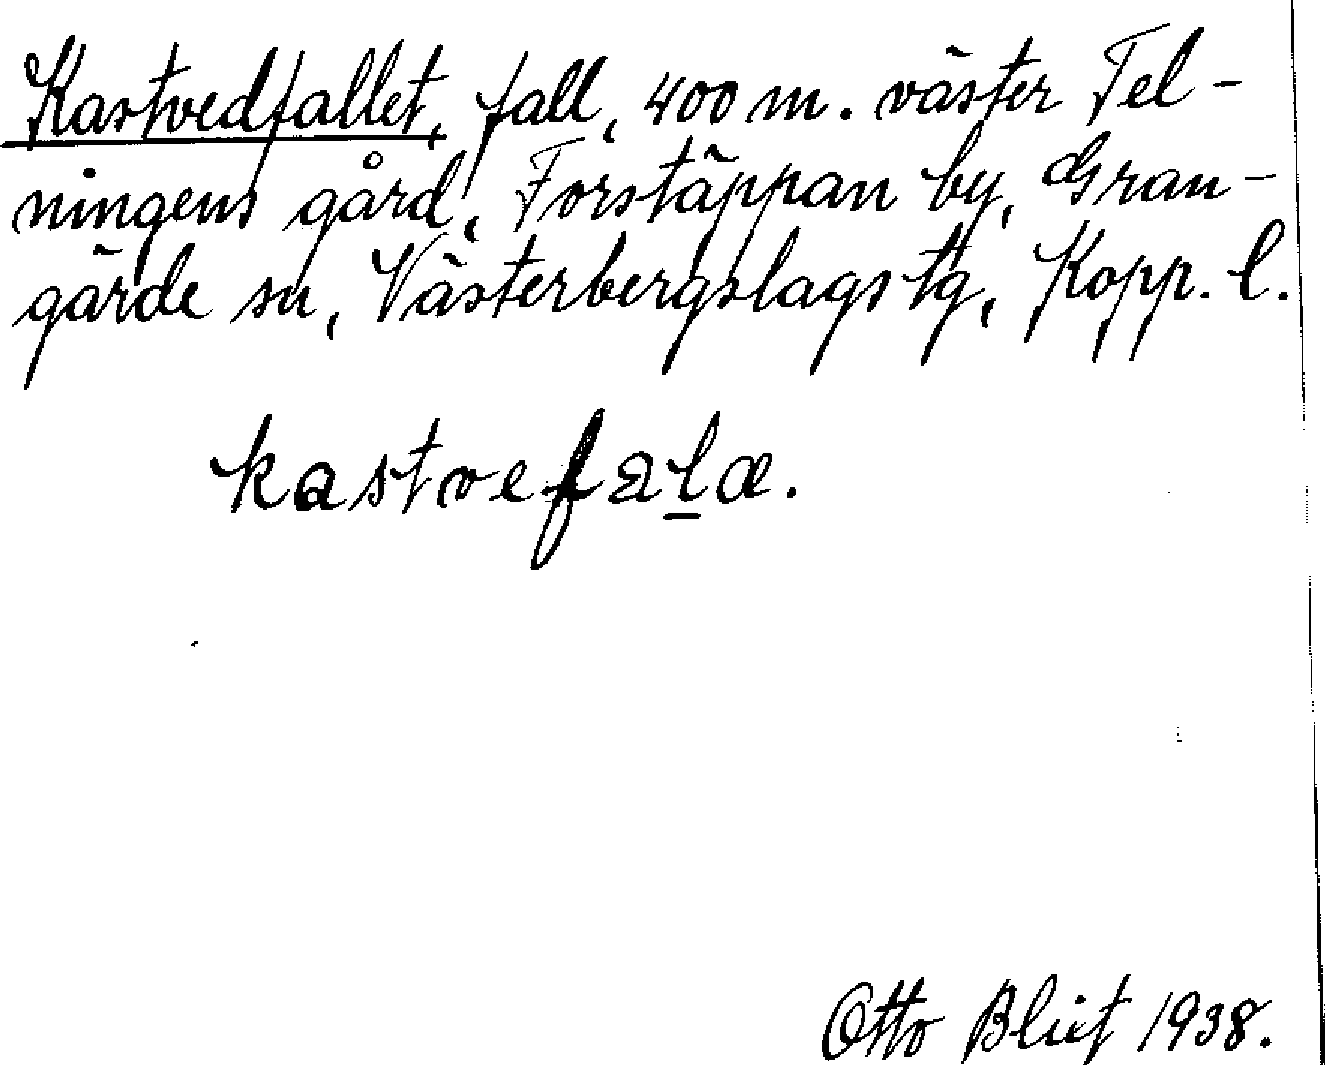 Kastvedfallet, fall, 400 m. väster Fel-
ningens gård, Forstäppan by, Gran-
gärde sn, Västerbergslags tg, Kopp. l.
kastvefala.
Otto Blixt 1938.